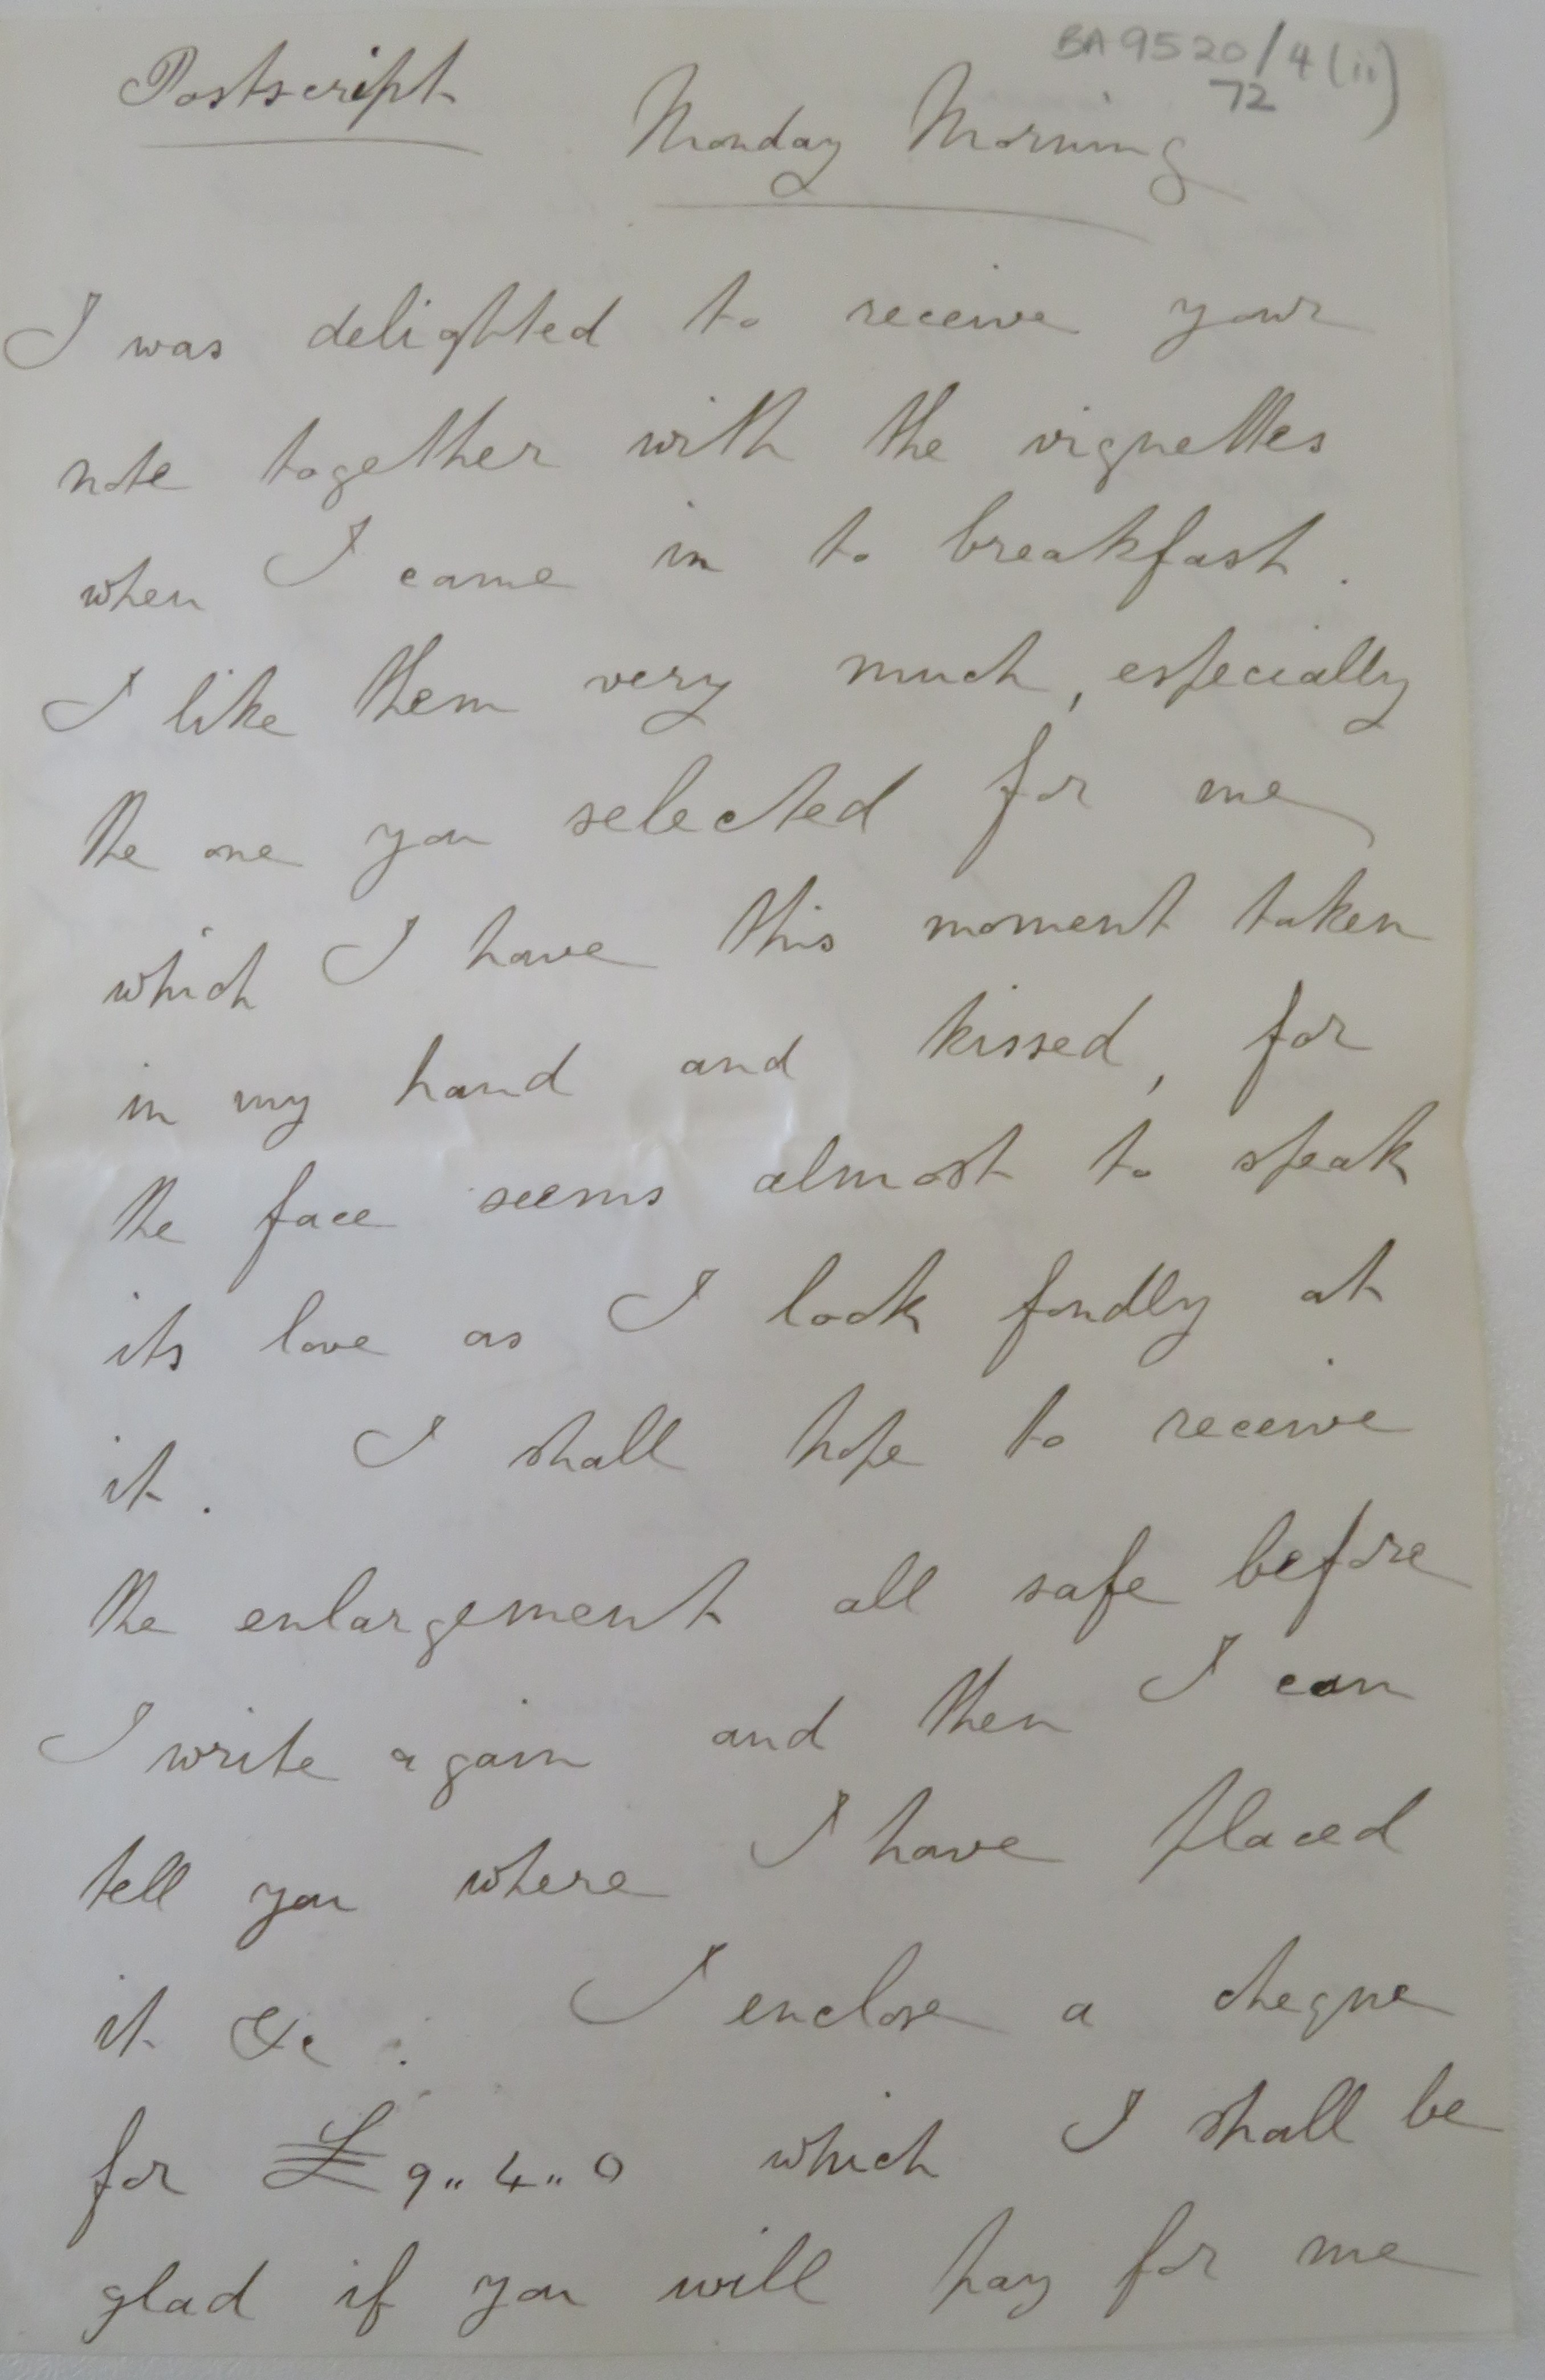 BA9520/4(ii)
72
Postscript
Monday Morning
I was delighted to receive your
note together with the vignettes
when I came in to breakfast.
I like them very much, especially
the one you selected for me
which I have this moment taken
in my hand and kissed, for
the face seems almost to speak
its love as I look fondly at
it. I shall hope to receive
the enlargement all safe before
I write again and then I can
tell you where I have placed
it &c. I enclose a cheque
for £9"4"0 which I shall be
glad if you will pay for me